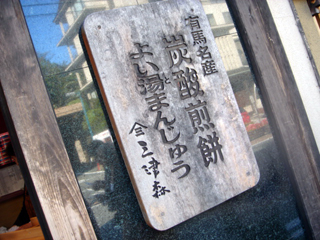 有馬名産
炭酸煎餅
よい湯まんじゅう
三津森